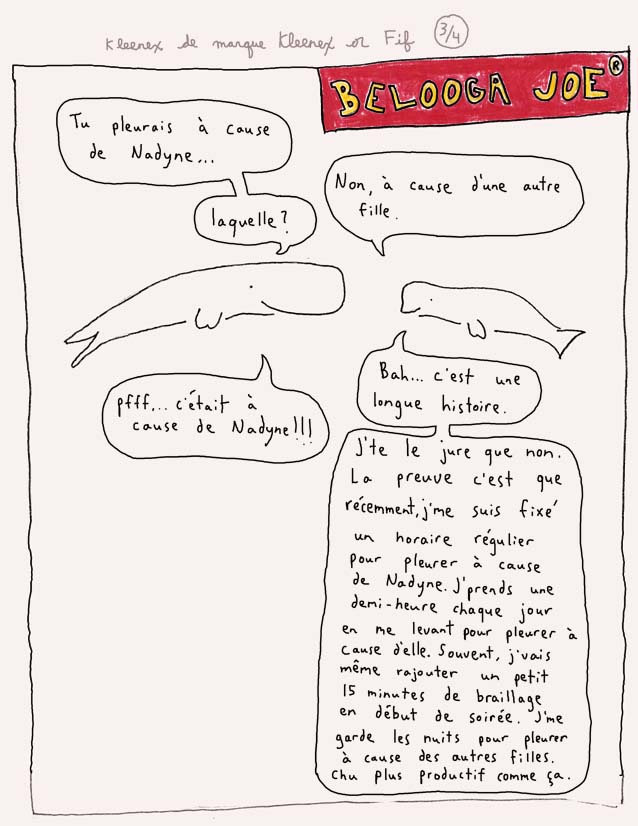 Kleenex de marque Kleenex or Fif 3/4
BELOOGA JOE®
Tu pleurais à cause
de Nadyne...
Non, à cause d'une autre
fille.
laquelle?
Bah... c'est une
longue histoire.
pfff... c'était à
cause de Nadyne!!!
J'te le jure que non.
La preuve c'est que
récemment, j'me suis fixé
un horaire régulier
pour pleurer à cause
de Nadyne. J'prends une
demi-heure chaque jour
en me levant pour pleurer à
cause d'elle. Souvent, j'vais
même rajouter un petit
15 minutes de braillage
en début de soirée. J'me
garde les nuits pour pleurer
à cause des autres filles.
Chu plus productif comme ça.